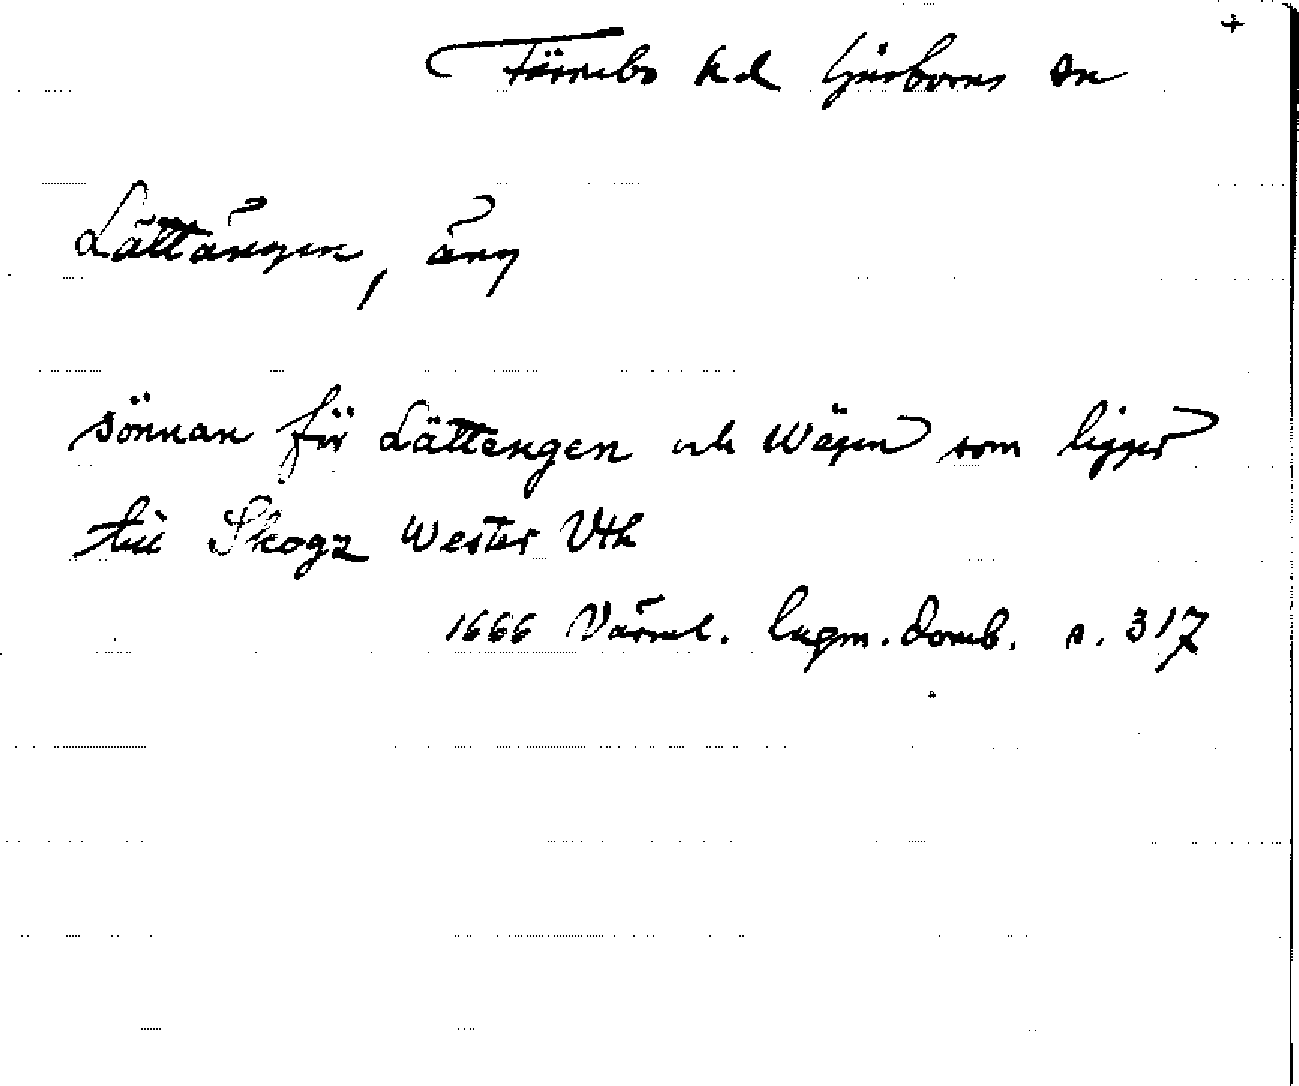 +
Färnebo hd Gåsborns sn
Lättängen, äng
sönnan för Lättengen och Wägen som ligger
till Skogz Wester Vth
1666 Värml. lagm. domb. s. 317